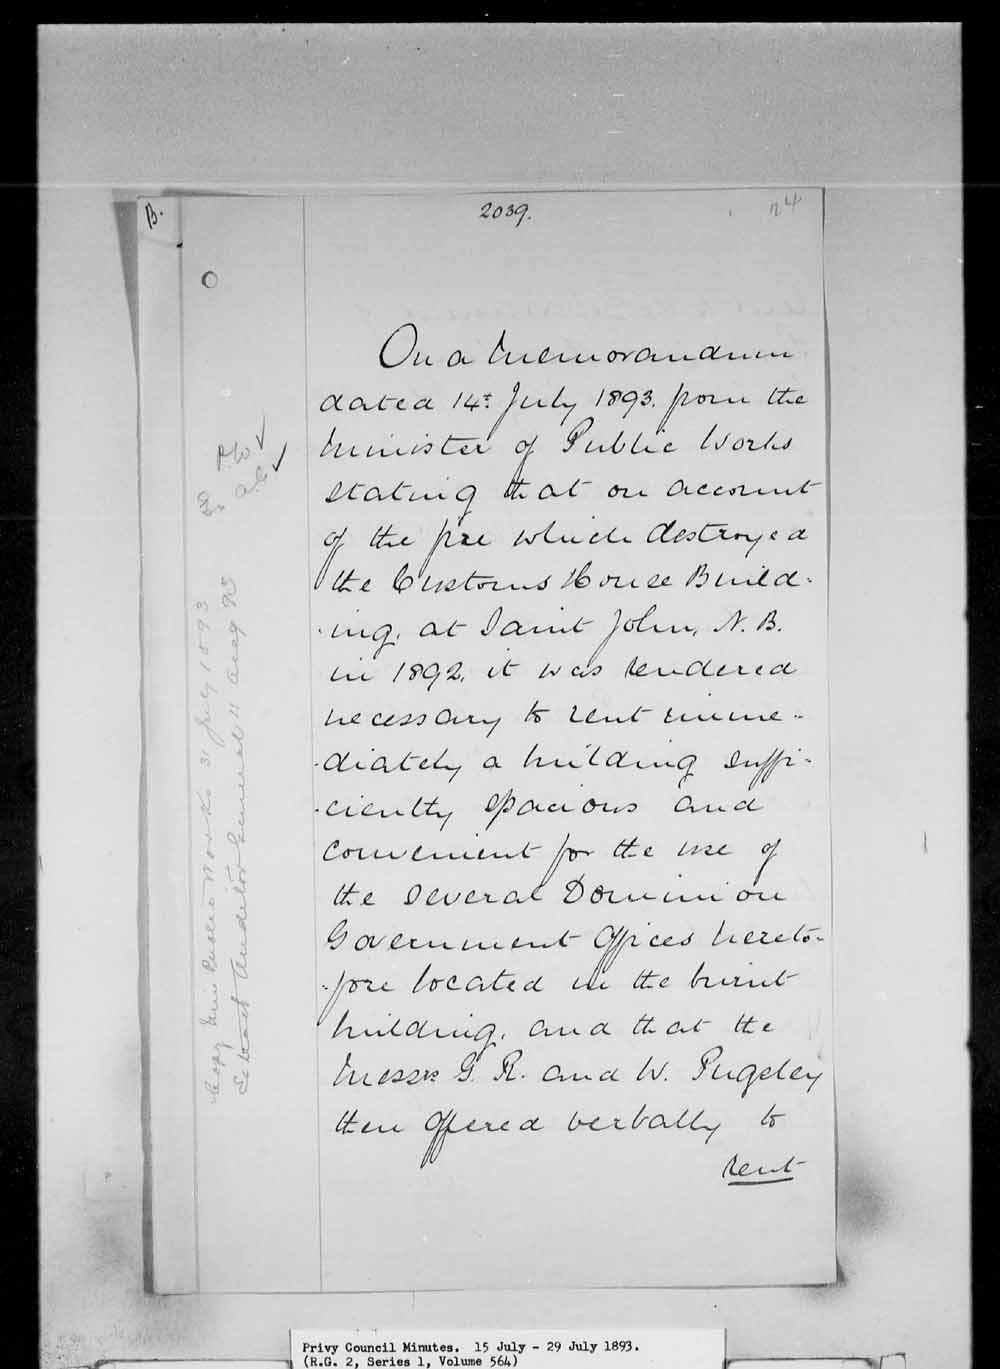 B.
2039.
On a Memorandum
dated 14th July 1893. from the
Minister of Public Works
stating that on account
of the fire which destroyed
the Customs House Build-
-ing, at Saint John, N. B.
in 1892, it was rendered
necessary to rent imme-
-diately a building suffi-
-ciently spacious and
convenient for the use of
the several Dominion
Government Offices hereto-
-fore located in the burnt
building, and that the
Messrs G. R. and W. Pugsley
then offered verbally to
rent
Copy Min Public Works 31 July 1893
Auditor General 11 Aug 93
Privy Council Minutes. 15 July - 29 July 1893.
(R.G. 2, Series 1, Volume 564)